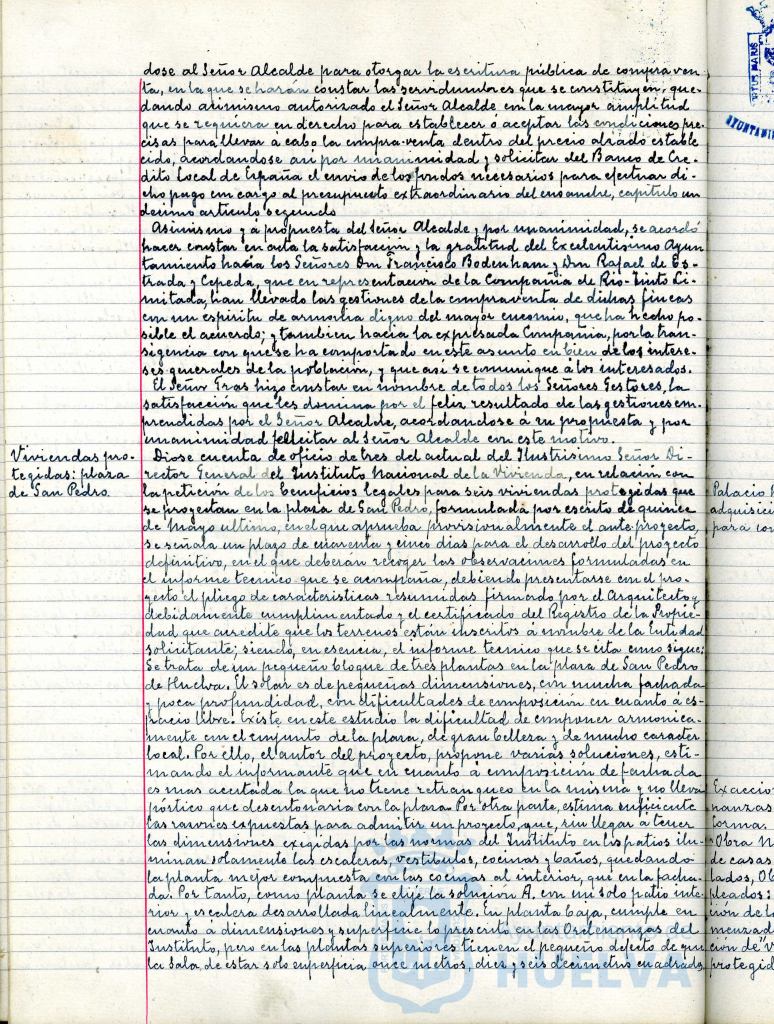 dose al Señor Alcalde para otorgar la escritura pública de compraven
ta, en la que se harán constar las servidumbres que se constituyen, que-
dando asimismo autorizado el Señor Alcalde con la mayor amplitud
que se requiera en derecho para establecer ó aceptar las condiciones pre-
cisas para llevar á cabo la compra-venta dentro del precio aliado estable
cido, acordandose asi por unanimidad y solicitar del Banco de Cre-
dito Local de España el envio de los fondos necesarios para efectuar di-
cho pago con cargo al presupuesto extraordinario del ensanche, capitulo un
decimo articulo segundo
Asimismo y á propuesta del Señor Alcalde y por unanimidad, se acordó
hacer constar en acta la satisfacción y la gratitud del Excelentisimo Ayun
tamiento hacia los Señores Don Francisco Bodenham y Don Rafael de Es-
trada y Cepeda, que en representacion de la Compañia de Rio-Tinto Li-
mitada, han llevado las gestiones de la compraventa de dichas fincas
con un espiritu de armonia digno del mayor encomio, que ha hecho po-
sible el acuerdo; y tambien hacia la expresada Compañia, por la tran-
sigencia con que se ha comportado en este asunto en bien de los intere-
ses generales de la población, y que asi se comunique á los interesados.
El Señor Gras hizo constar en nombre de todos los Señores Gestores, la
satisfacción que les domina por el feliz resultado de las gestiones em-
prendidas por el Señor Alcalde, acordandose á su propuesta y por
unanimidad felicitar al Señor Alcalde con este motivo.
Viviendas pro-
tegidas: plaza
de San Pedro.
Diose cuenta de oficio de tres del actual del Ilustrisimo Señor Di-
rector General del Instituto Nacional de la Vivienda, en relación con
la petición de los beneficios legales para seis viviendas protegidas que
se proyectan en la plaza de San Pedro, formulada por escrito de quince
de Mayo ultimo, en el que aprueba provisionalmente el ante-proyecto,
se señala un plazo de cuarenta y cinco dias para el desarrollo del proyecto
definitivo, en el que deberan recoger las observaciones formuladas en
el informe tecnico que se acompaña, debiendo presentarse con el pro-
yecto el pliego de caracteristicas resumidas firmado por el Arquitecto y
debidamente cumplimentado y el certificado del Registro de la Propie-
dad que acredite que los terrenos están inscritos á nombre de la Entidad
solicitante; siendo, en esencia, el informe tecnico que se cita como sigue:
Se trata de un pequeño bloque de tres plantas en la plaza de San Pedro
de Huelva. El solar es de pequeñas dimensiones, con mucha fachada
y poca profundidad, con dificultades de composición en cuanto á es-
pacio libre. Existe en este estudio la dificultad de componer armonica-
mente con el conjunto de la plaza, de gran belleza y de mucho caracter
local. Por ello, el autor del proyecto, propone varias soluciones, esti-
mando el informante que en cuanto á composición de fachada
es mas acertada la que no tiene retranqueo en la misma y no lleva
pórtico que desentonaria con la plaza. Por otra parte, estima suficiente
las razones expuestas para admitir un proyecto, que, sin llegar á tener
las dimensiones exigidas por las normas del Instituto en los patios ilu-
minan solamente las escaleras, vestibulos, cocinas y baños, quedando
la planta mejor compuesta con las cocinas al interior, que en la facha-
da. Por tanto, como planta se elije la solución A, con un solo patio inte-
rior y escalera desarrollada linealmente. En planta baja, cumple en
cuanto á dimensiones y superficie lo prescrito en las Ordenanzas del
Instituto, pero en las plantas superiores tienen el pequeño defecto de que
la sala de estar solo superficia once metros, diez y seis decimetros cuadrados
Palacio
adquisici
para con
Exaccio
nanzas
torma.
Obra
de casas
lados, Ob
pleados:
ción de l
menzad
ción de v
protegid
HUELVA